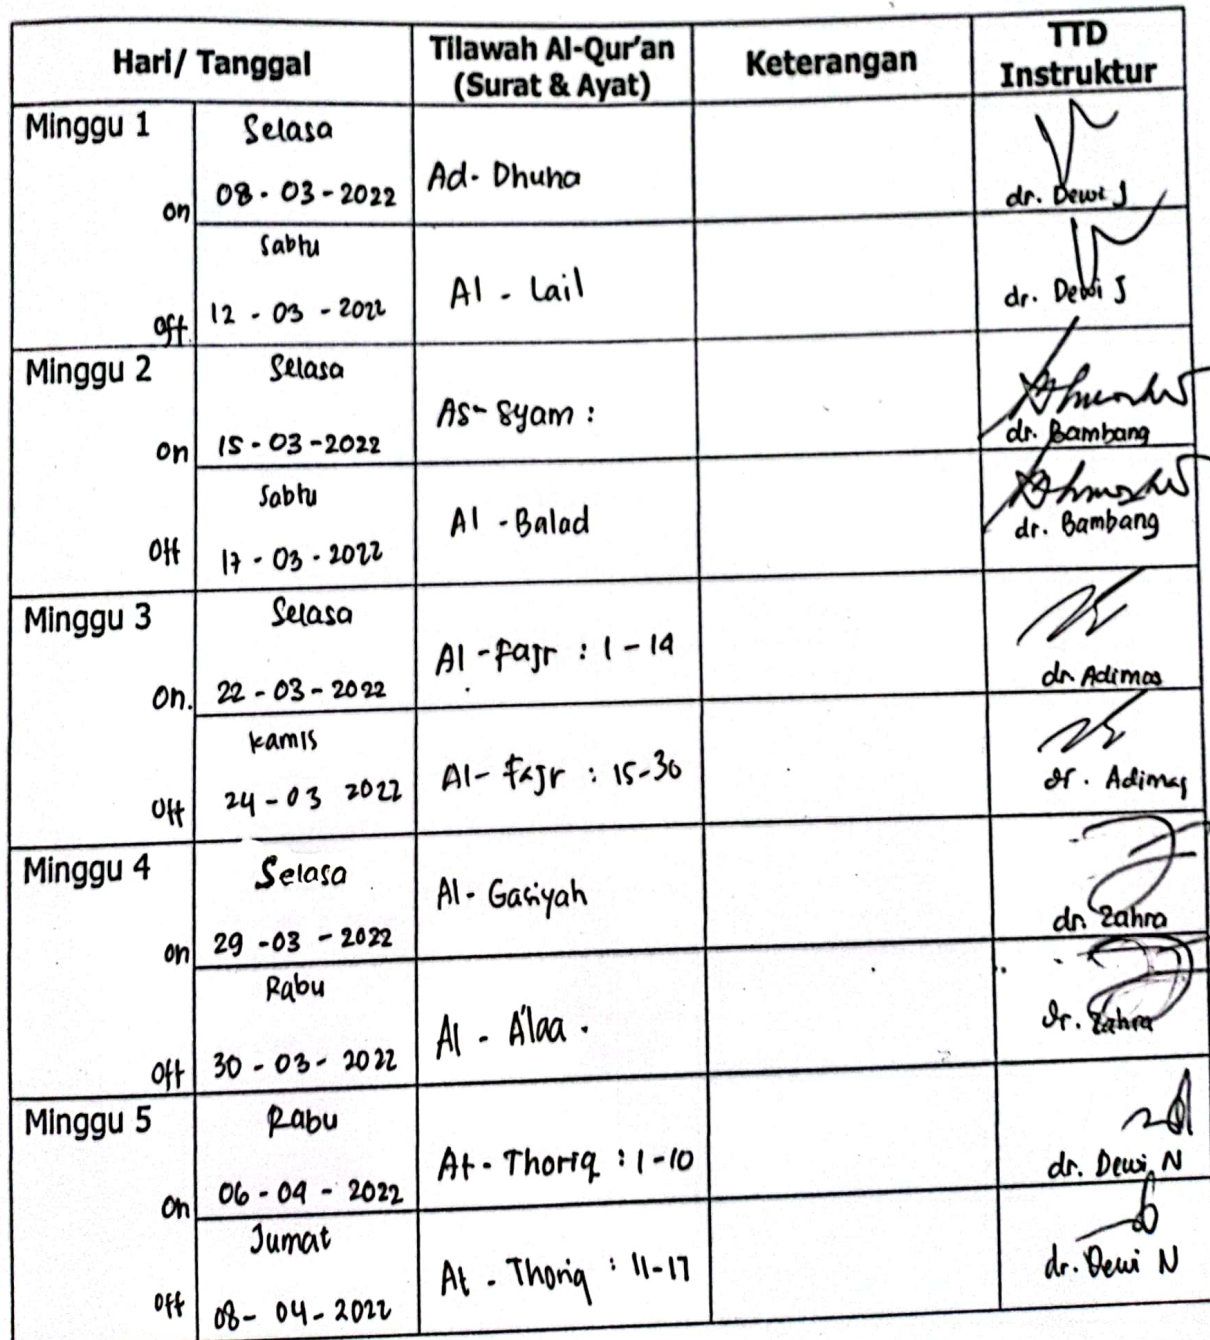 Hari/ Tanggal
Tilawah Al-Qur'an
(Surat & Ayat)
Keterangan
TTD
Instruktur
Minggu 1
on
Selasa
08 - 03 - 2022
Ad - Dhuha
dr. Dewi J
off
Sabtu
12 - 03 - 2022
Al - Lail
dr. Dewi J
Minggu 2
on
Selasa
15 - 03 - 2022
As - Syam :
dr. Bambang
Off
Sabtu
17 - 03 - 2022
Al - Balad
dr. Bambang
Minggu 3
On.
Selasa
22 - 03 - 2022
Al - Fajr : 1 - 14
dr. Adimas
Off
Kamis
24 - 03 2022
Al - Fajr : 15-30
dr. Adimas
Minggu 4
on
Selasa
29 - 03 - 2022
Al - Gasiyah
dr. Zahra
Off
Rabu
30 - 03 - 2022
Al - A'laa .
dr. Zahra
Minggu 5
On
Rabu
06 - 04 - 2022
At - Thoriq : 1-10
dr. Dewi N
off
Jumat
08 - 04 - 2022
At - Thoriq : 11-17
dr. Dewi N